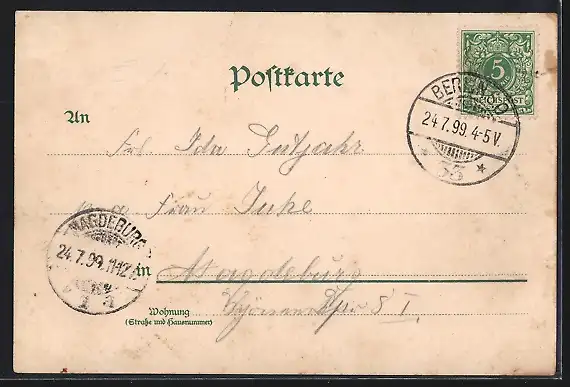 Postkarte
5
REICHSPOST
BERLIN SO
24.7.99.4-5V.
33
An
Frl. Ida Gutjahr
Frau Juke
MAGDEBURG
24.7.99.11-12
1
in Magdeburg
Wohnung
(Straße und Hausnummer)
8 I.